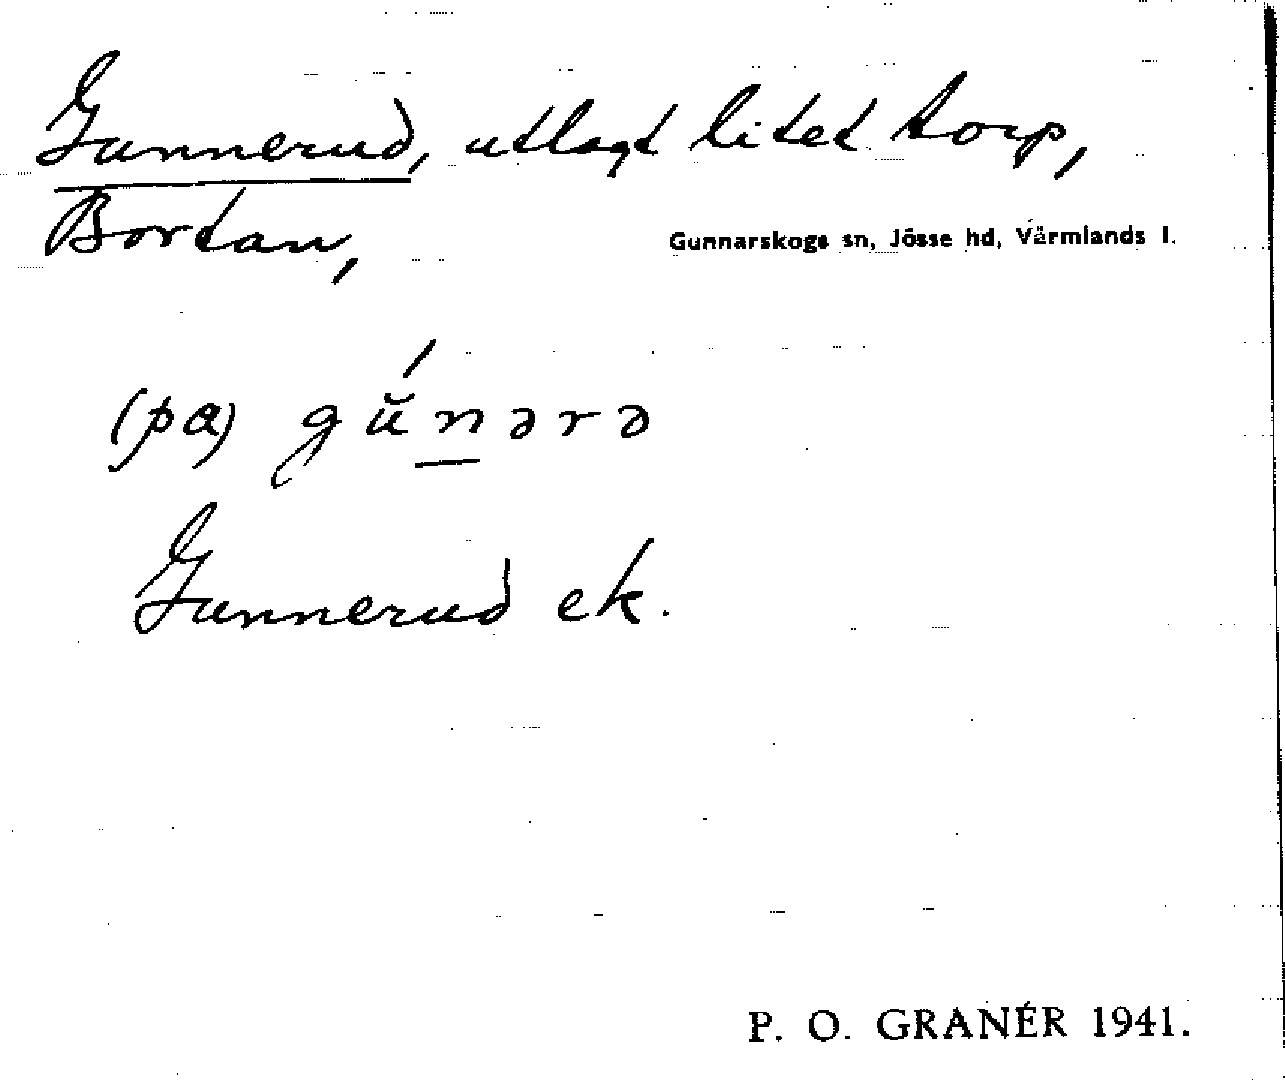 Gunnerud, utlagt litet torp,
Bortan,
Gunnarskogs sn, Jösse hd, Värmlands l.
(pa) gŭ́nərə
Gunnerud ek.
P. O. GRANÉR 1941.